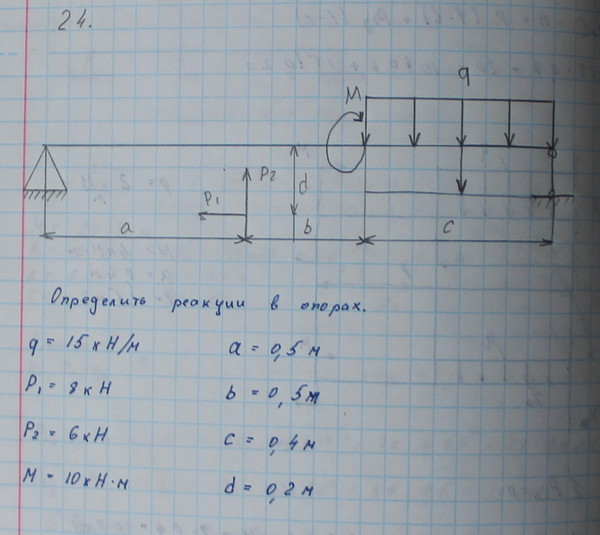 24.
q
M
P₂
d
P₁
a
b
c
Определить реакции в опорах.
q = 15 кН/м a = 0,5 м
P₁ = 8 кН b = 0,5 м
P₂ = 6 кН c = 0,4 м
M = 10 кН·м d = 0,2 м